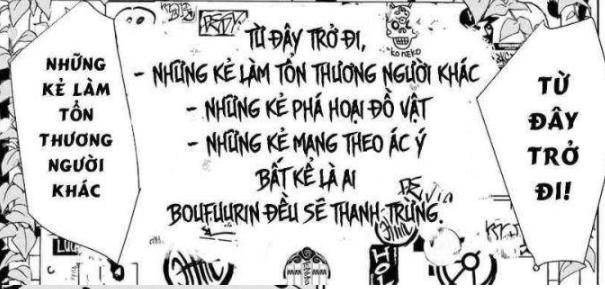 NHỮNG
KẺ LÀM
TỔN
THƯƠNG
NGƯỜI
KHÁC
TỪ ĐÂY TRỞ ĐI,
- NHỮNG KẺ LÀM TỔN THƯƠNG NGƯỜI KHÁC
- NHỮNG KẺ PHÁ HOẠI ĐỒ VẬT
- NHỮNG KẺ MANG THEO ÁC Ý
BẤT KỂ LÀ AI
BOUFUURIN ĐỀU SẼ THANH TRỪNG.
TỪ
ĐÂY
TRỞ
ĐI!
KONEKO